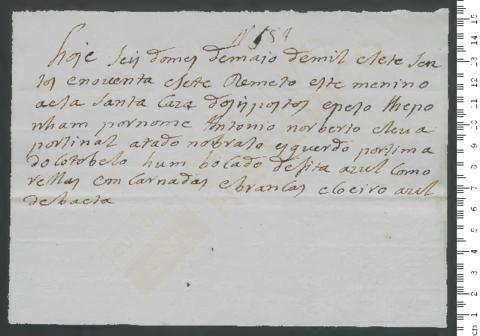 Nº 584
hoje seis domes demaio demil esete sen
tos enoventa esete Remeto este menino
aesta Santa Caza dos ispostos epeso lhepo
nham pornome Antonio norberto eleva
porsinal atado nobraso esquerdo porsima
docotobelo hum bocado defita azul como
rellas em carnadas ebrancas ecoeiro azul
debaeta
cm 1 2 3 4 5 6 7 8 9 10 11 12 13 14 15